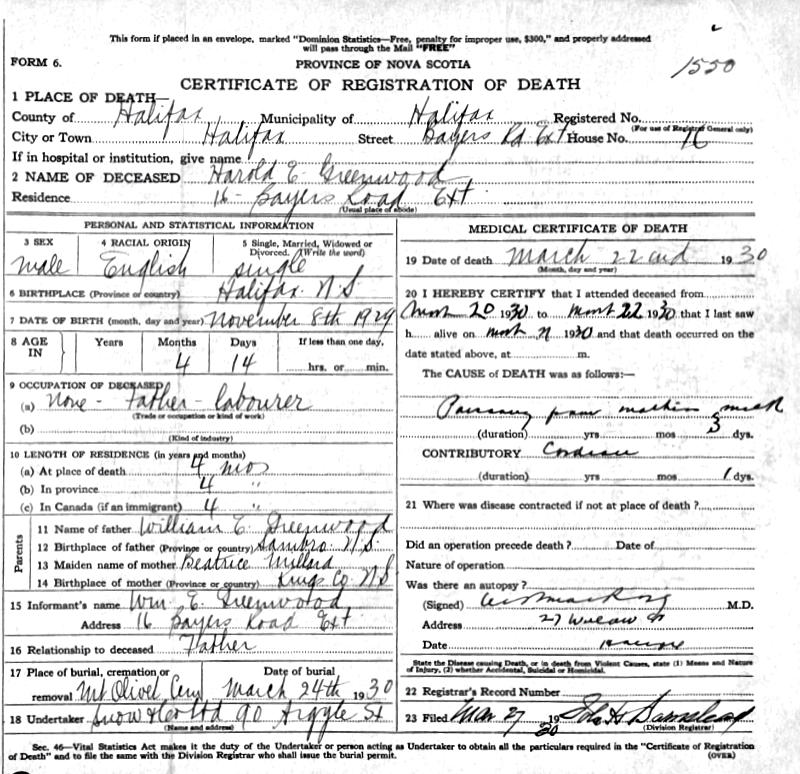 This form if placed in an envelope, marked "Dominion Statistics—Free, penalty for improper use, $300," and properly addressed
will pass through the Mail "FREE"
FORM 6.
PROVINCE OF NOVA SCOTIA
1550
CERTIFICATE OF REGISTRATION OF DEATH
1 PLACE OF DEATH—
County of Halifax Municipality of Halifax Registered No.
(For use of Registrar General only)
City or Town Halifax Street Bayers Rd Ext House No. 16
If in hospital or institution, give name
2 NAME OF DECEASED Harold E. Greenwood
Residence 16 - Bayers Road Ext
(Usual place of abode)
PERSONAL AND STATISTICAL INFORMATION
3 SEX 4 RACIAL ORIGIN 5 Single, Married, Widowed or Divorced. (Write the word)
male English single
6 BIRTHPLACE (Province or country) Halifax. N.S.
7 DATE OF BIRTH (month, day and year) November 8th 1929
8 AGE IN Years Months Days If less than one day,
4 14 hrs. or min.
9 OCCUPATION OF DECEASED
(a) None - Father - labourer
(Trade or occupation or kind of work)
(b)
(Kind of industry)
10 LENGTH OF RESIDENCE (in years and months)
(a) At place of death 4 mos
(b) In province 4 "
(c) In Canada (if an immigrant) 4 "
Parents
11 Name of father William E. Greenwood
12 Birthplace of father (Province or country) Sambro. N.S.
13 Maiden name of mother Beatrice Millard
14 Birthplace of mother (Province or country) Kings Co. N.S.
15 Informant's name Wm. E. Greenwood
Address 16 Bayers Road Ext
16 Relationship to deceased Father
17 Place of burial, cremation or Date of burial
removal Mt Olivet Cem March 24th 1930
18 Undertaker Snow & Co Ltd 90 Argyle St
(Name and address)
MEDICAL CERTIFICATE OF DEATH
19 Date of death March 22nd 1930
(Month, day and year)
20 I HEREBY CERTIFY that I attended deceased from
20 1930 to 22 1930 that I last saw
h alive on 1930 and that death occurred on
date stated above, at m.
The CAUSE of DEATH was as follows:—
milk
(duration) yrs mos 3 dys.
CONTRIBUTORY
(duration) yrs mos 1 dys.
21 Where was disease contracted if not at place of death?
Did an operation precede death? Date of
Nature of operation
Was there an autopsy?
(Signed) M.D.
Address 27 Willow St
Date
State the Disease causing Death, or in death from Violent Causes, state (1) Means and Nature
of Injury, (2) whether Accidental, Suicidal or Homicidal.
22 Registrar's Record Number
23 Filed Mar 27 1930
(Division Registrar)
Sec. 46—Vital Statistics Act makes it the duty of the Undertaker or person acting as Undertaker to obtain all the particulars required in the "Certificate of Registration
of Death" and to file the same with the Division Registrar who shall issue the burial permit. (OVER)